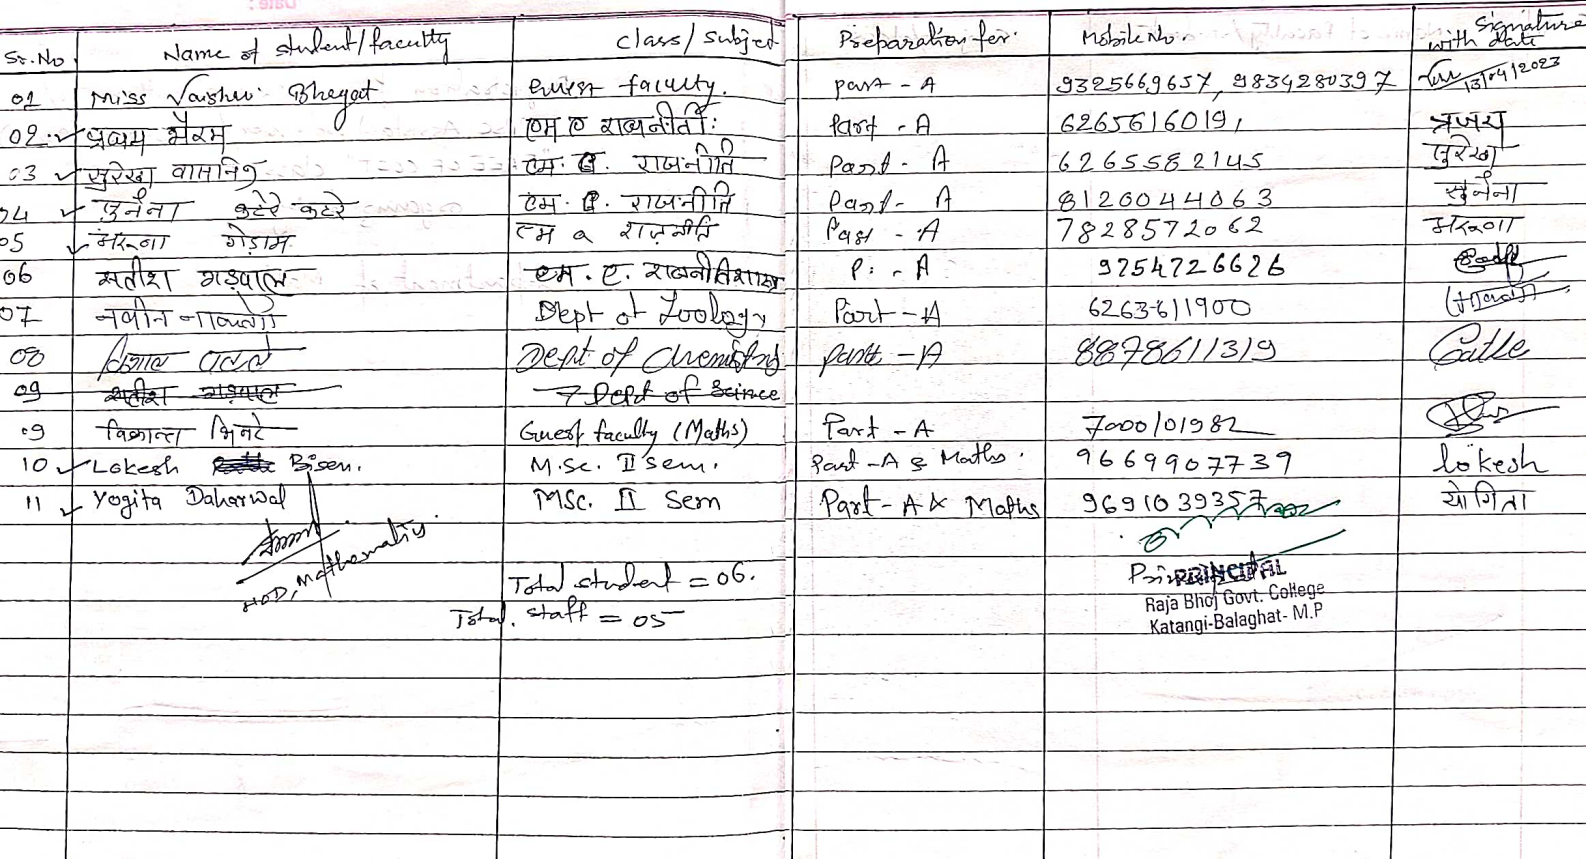 Sr.No. Name of student/faculty class/subject Preparation for Mobile No. Signature with date
01 Miss Vaishu Bhagat Guest faculty. part - A 9325669657, 9834280397 13/04/2023
02. एम ए राजनीती: Part - A 6265616019,
03 सुरेखा एम. ए. राजनीति Part - A 6265582145 सुरेखा
04 सुनैना कटेरे कटरे एम. ए. राजनीति Part - A 8120044063 सुनैना
05 गेडाम एम ए राजनीति Part - A 7828572062
06 सतीश गड़पाल एम. ए. राजनीतिशास्त्र P. - A 9254726626
07 नवीन Dept of Zoology Part - A 6263611900
08 Dept of Chemistry part - A 8878611319
09 सतीश गड़पाल Dept of Science
09 विक्रान्त भिमटे Guest faculty (Maths) Part - A 7000101982
10 Lokesh Bisen. M.sc. II sem. Part -A & Maths. 9669907739 lokesh
11 Yogita Daharwal MSc. II Sem Part - A & Maths 9691039357 योगिता
HOD, Mathematics
Total student = 06.
Total. staff = 05
PRINCIPAL
Raja Bhoj Govt. College
Katangi-Balaghat- M.P